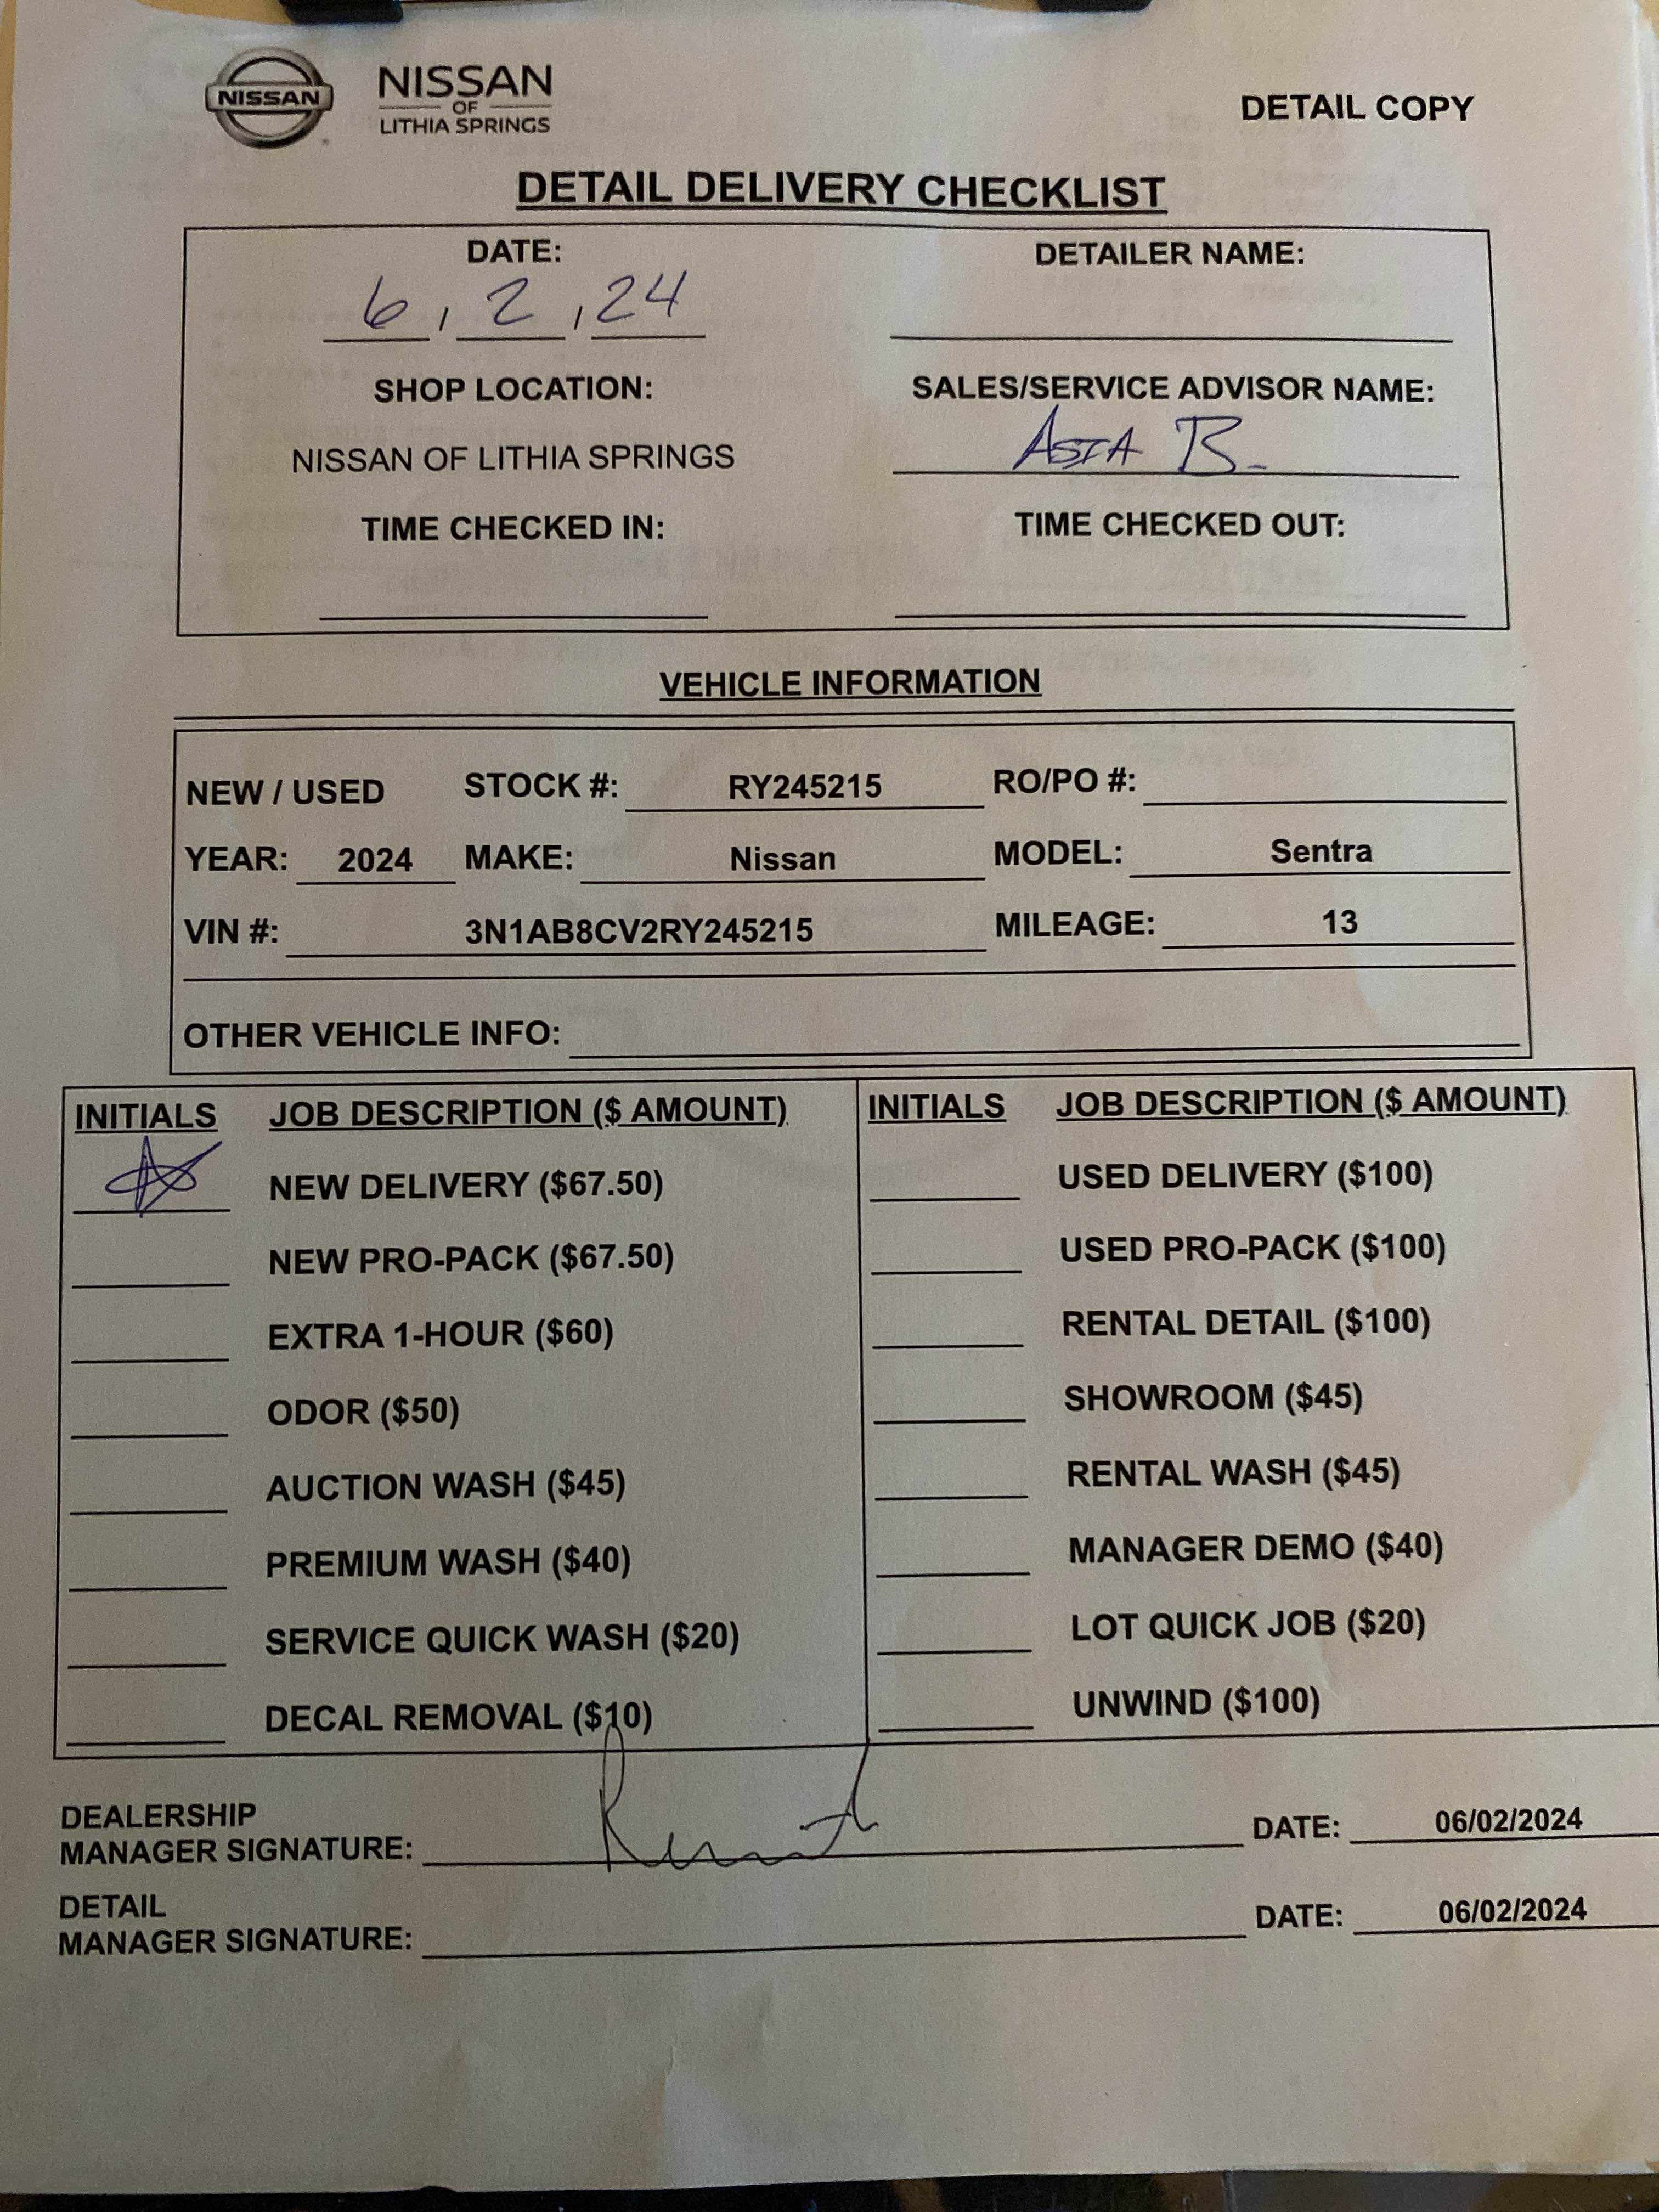 NISSAN
NISSAN
OF
LITHIA SPRINGS
DETAIL COPY
DETAIL DELIVERY CHECKLIST
DATE: DETAILER NAME:
6 / 2 / 24
SHOP LOCATION: SALES/SERVICE ADVISOR NAME:
NISSAN OF LITHIA SPRINGS ASIA B.
TIME CHECKED IN: TIME CHECKED OUT:
VEHICLE INFORMATION
NEW / USED STOCK #: RY245215 RO/PO #:
YEAR: 2024 MAKE: Nissan MODEL: Sentra
VIN #: 3N1AB8CV2RY245215 MILEAGE: 13
OTHER VEHICLE INFO:
INITIALS JOB DESCRIPTION ($ AMOUNT) INITIALS JOB DESCRIPTION ($ AMOUNT)
NEW DELIVERY ($67.50) USED DELIVERY ($100)
NEW PRO-PACK ($67.50) USED PRO-PACK ($100)
EXTRA 1-HOUR ($60) RENTAL DETAIL ($100)
ODOR ($50) SHOWROOM ($45)
AUCTION WASH ($45) RENTAL WASH ($45)
PREMIUM WASH ($40) MANAGER DEMO ($40)
SERVICE QUICK WASH ($20) LOT QUICK JOB ($20)
DECAL REMOVAL ($10) UNWIND ($100)
DEALERSHIP
MANAGER SIGNATURE: DATE: 06/02/2024
DETAIL
MANAGER SIGNATURE: DATE: 06/02/2024